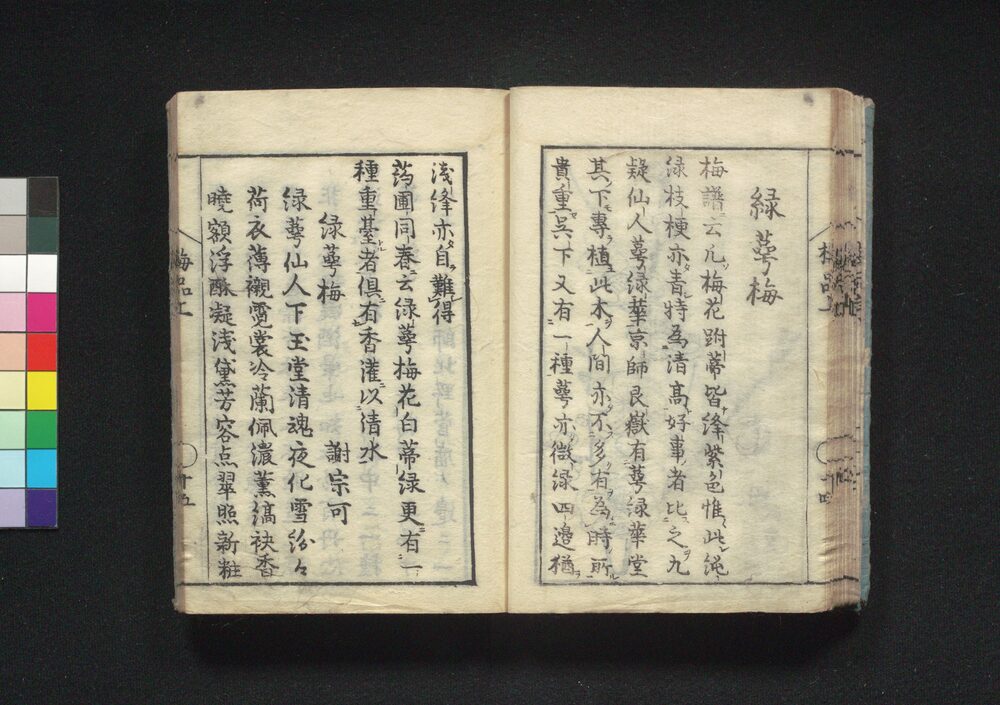 緑萼梅
梅譜云凡梅花跗蒂皆絳紫色惟此純
緑枝梗亦青特為清高好事者比之九
疑仙人萼緑華京師艮嶽有萼緑華堂
其下專植此本人間亦不多有為時所
貴重呉下又有一種萼亦微緑四邉猶
浅絳亦自難得
葯圃同春云緑萼梅花白蒂緑更有一
種重䑓者俱有香灌以清水
緑萼梅 謝宗可
緑萼仙人下玉堂清魂夜化雪紛々
荷衣薄襯霓裳冷蘭佩濃薫縞袂香
曉額浮酥凝浅黛芳容点翠照新粧
梅品上
十五